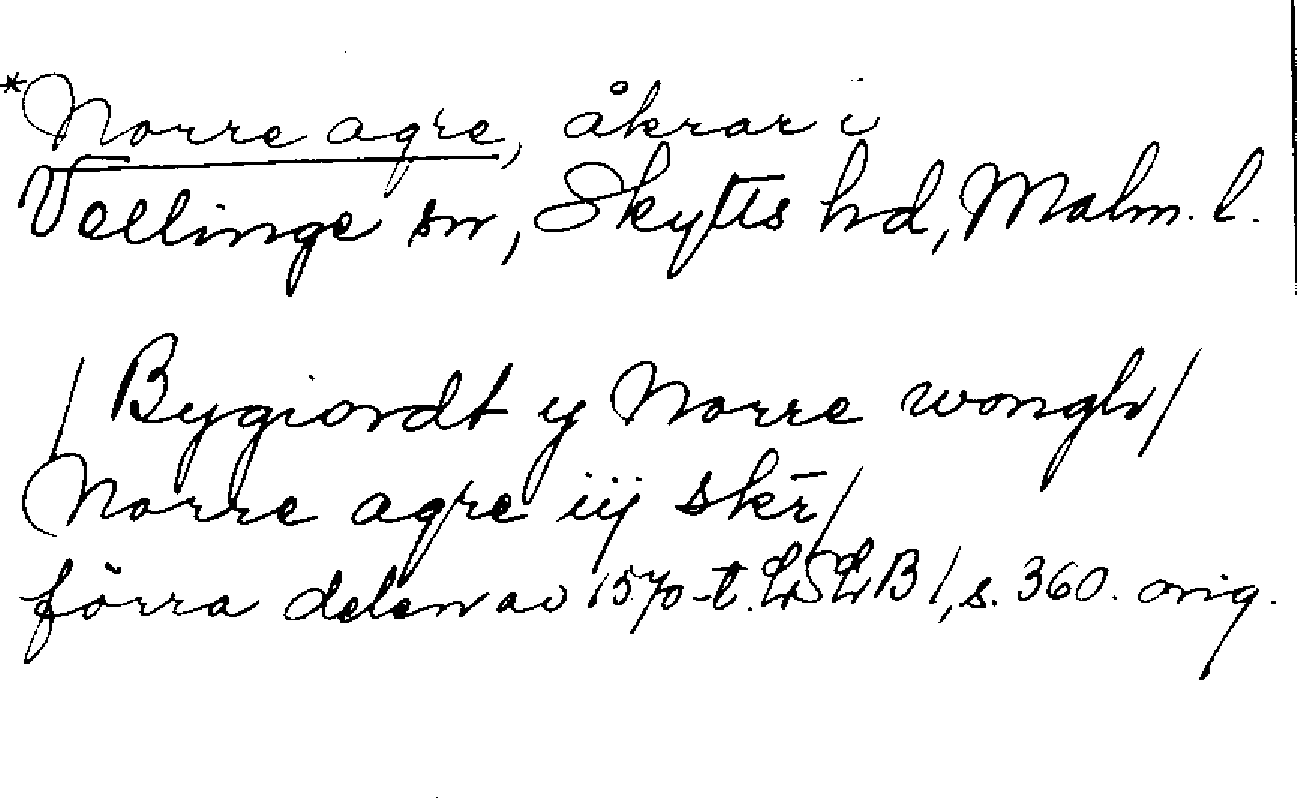 *Norre agre, åkrar i
Vellinge sn, Skytts hd, Malm. l.
/ Bygiordt y Norre wongh/
Norre agre iij skr̄/
förra delen av 1570-t. LSLB 1, s. 360. orig.